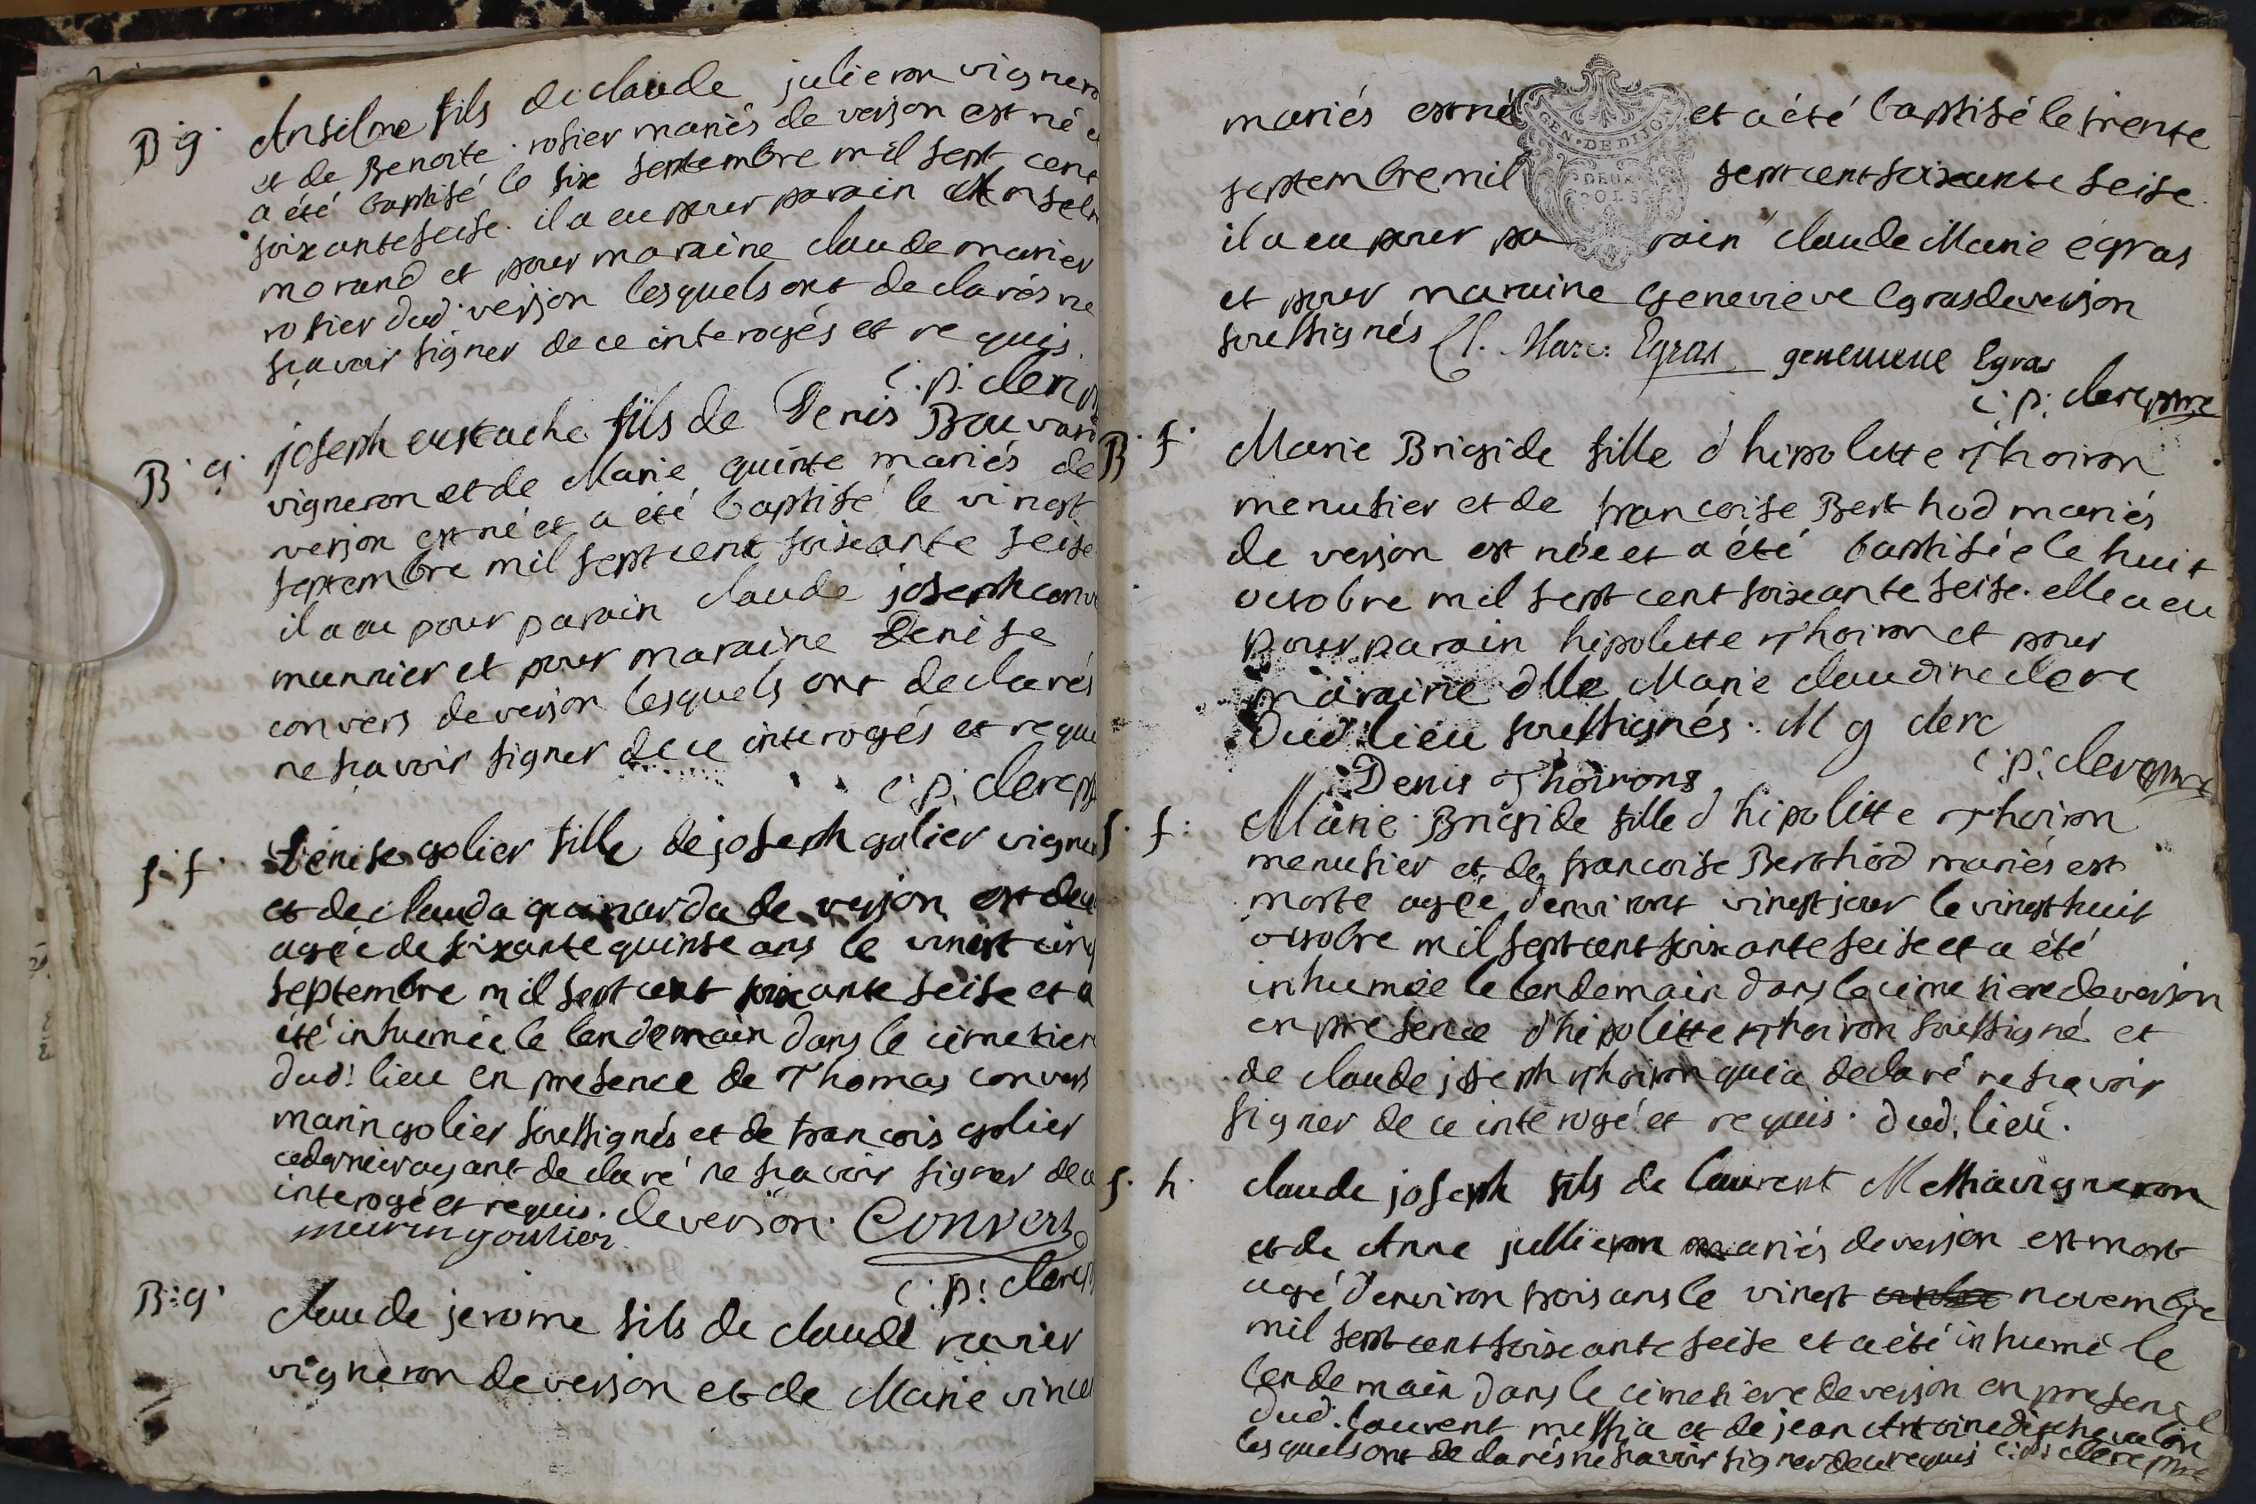 B g. Anselme fils de claude julieron vignero
et de Benoite rosier mariés de verjon est né e
a été baptisé le six septembre mil sept cent
soixante seise. il a eu pour parain Ansel
morand et pour maraine claude marier
rosier dud. verjon lesquels ont declarés ne
sçavoir signer de ce interogés et requis.
c. p. clerc p
B g. joseph eustache fils de Denis Bouvard
vigneron et de Marie quinte mariés de
verjon est né et a été baptisé le vingt
septembre mil sept cent soixante seise
il a eu pour parain claude joseph conv
munnier et pour maraine Denise
convers de verjon lesquels ont declarés
ne sçavoir signer de ce interogés et requi
c. p. clerc p
s. f. Denise golier fille de joseph golier vigne
et de clauda guinarda de verjon est dec
agée de soixante quinse ans le vingt cinq
septembre mil sept cent soixante seise et a
été inhumée le lendemain dans le cimetier
dud. lieu en presence de Thomas convers
marin golier soussignés et de francois golier
ce dernier ayant declaré ne sçavoir signer de c
interogé et requis. de verjon. Convers
marin goulier
c. p. clerc p
B. g. claude jerome fils de claude ravier
vigneron de verjon et de Marie vince
mariés est né et a été baptisé le trente
GEN. DE DIJON
septembre mil sept cent soixante seise.
DEUX SOLS
il a eu pour parain claude Marie égras
et pour maraine Genevieve Egras de verjon
soussignés Cl. Marie Egras genevieve Egras
c. p. clerc ptre
B. f. Marie Brigide fille d'hipolitte Thoiron
menusier et de francoise Berthod mariés
de verjon est née et a été baptisée le huit
octobre mil sept cent soixante seise. elle a eu
pour parain hipolitte Thoiron et pour
maraine dlle Marie claudine clerc
dud. lieu soussignés. M g clerc
Denis Thoirons c. p. clerc ptre
s. f. Marie Brigide fille d'hipolitte Thoiron
menusier et de francoise Berthod mariés est
morte agée d'environt vingt jour le vingt huit
octobre mil sept cent soixante seise et a été
inhumée le lendemain dans le cimetiere de verjon
en presence d'hipolitte Thoiron soussigné et
de claude joseph Thoiron qui a declaré ne sçavoir
signer de ce interogé et requis. dud. lieu.
s. h. claude joseph fils de laurent Messia vigneron
et de Anne jullieron mariés de verjon est mort
agé d'environ trois ans le vingt novembre
mil sept cent soixante seise et a été inhumé le
lendemain dans le cimetiere de verjon en presence
dud. laurent messia et de jean Antoine
lesquels ont declarés ne sçavoir signer de ce requis c. p. clerc ptre